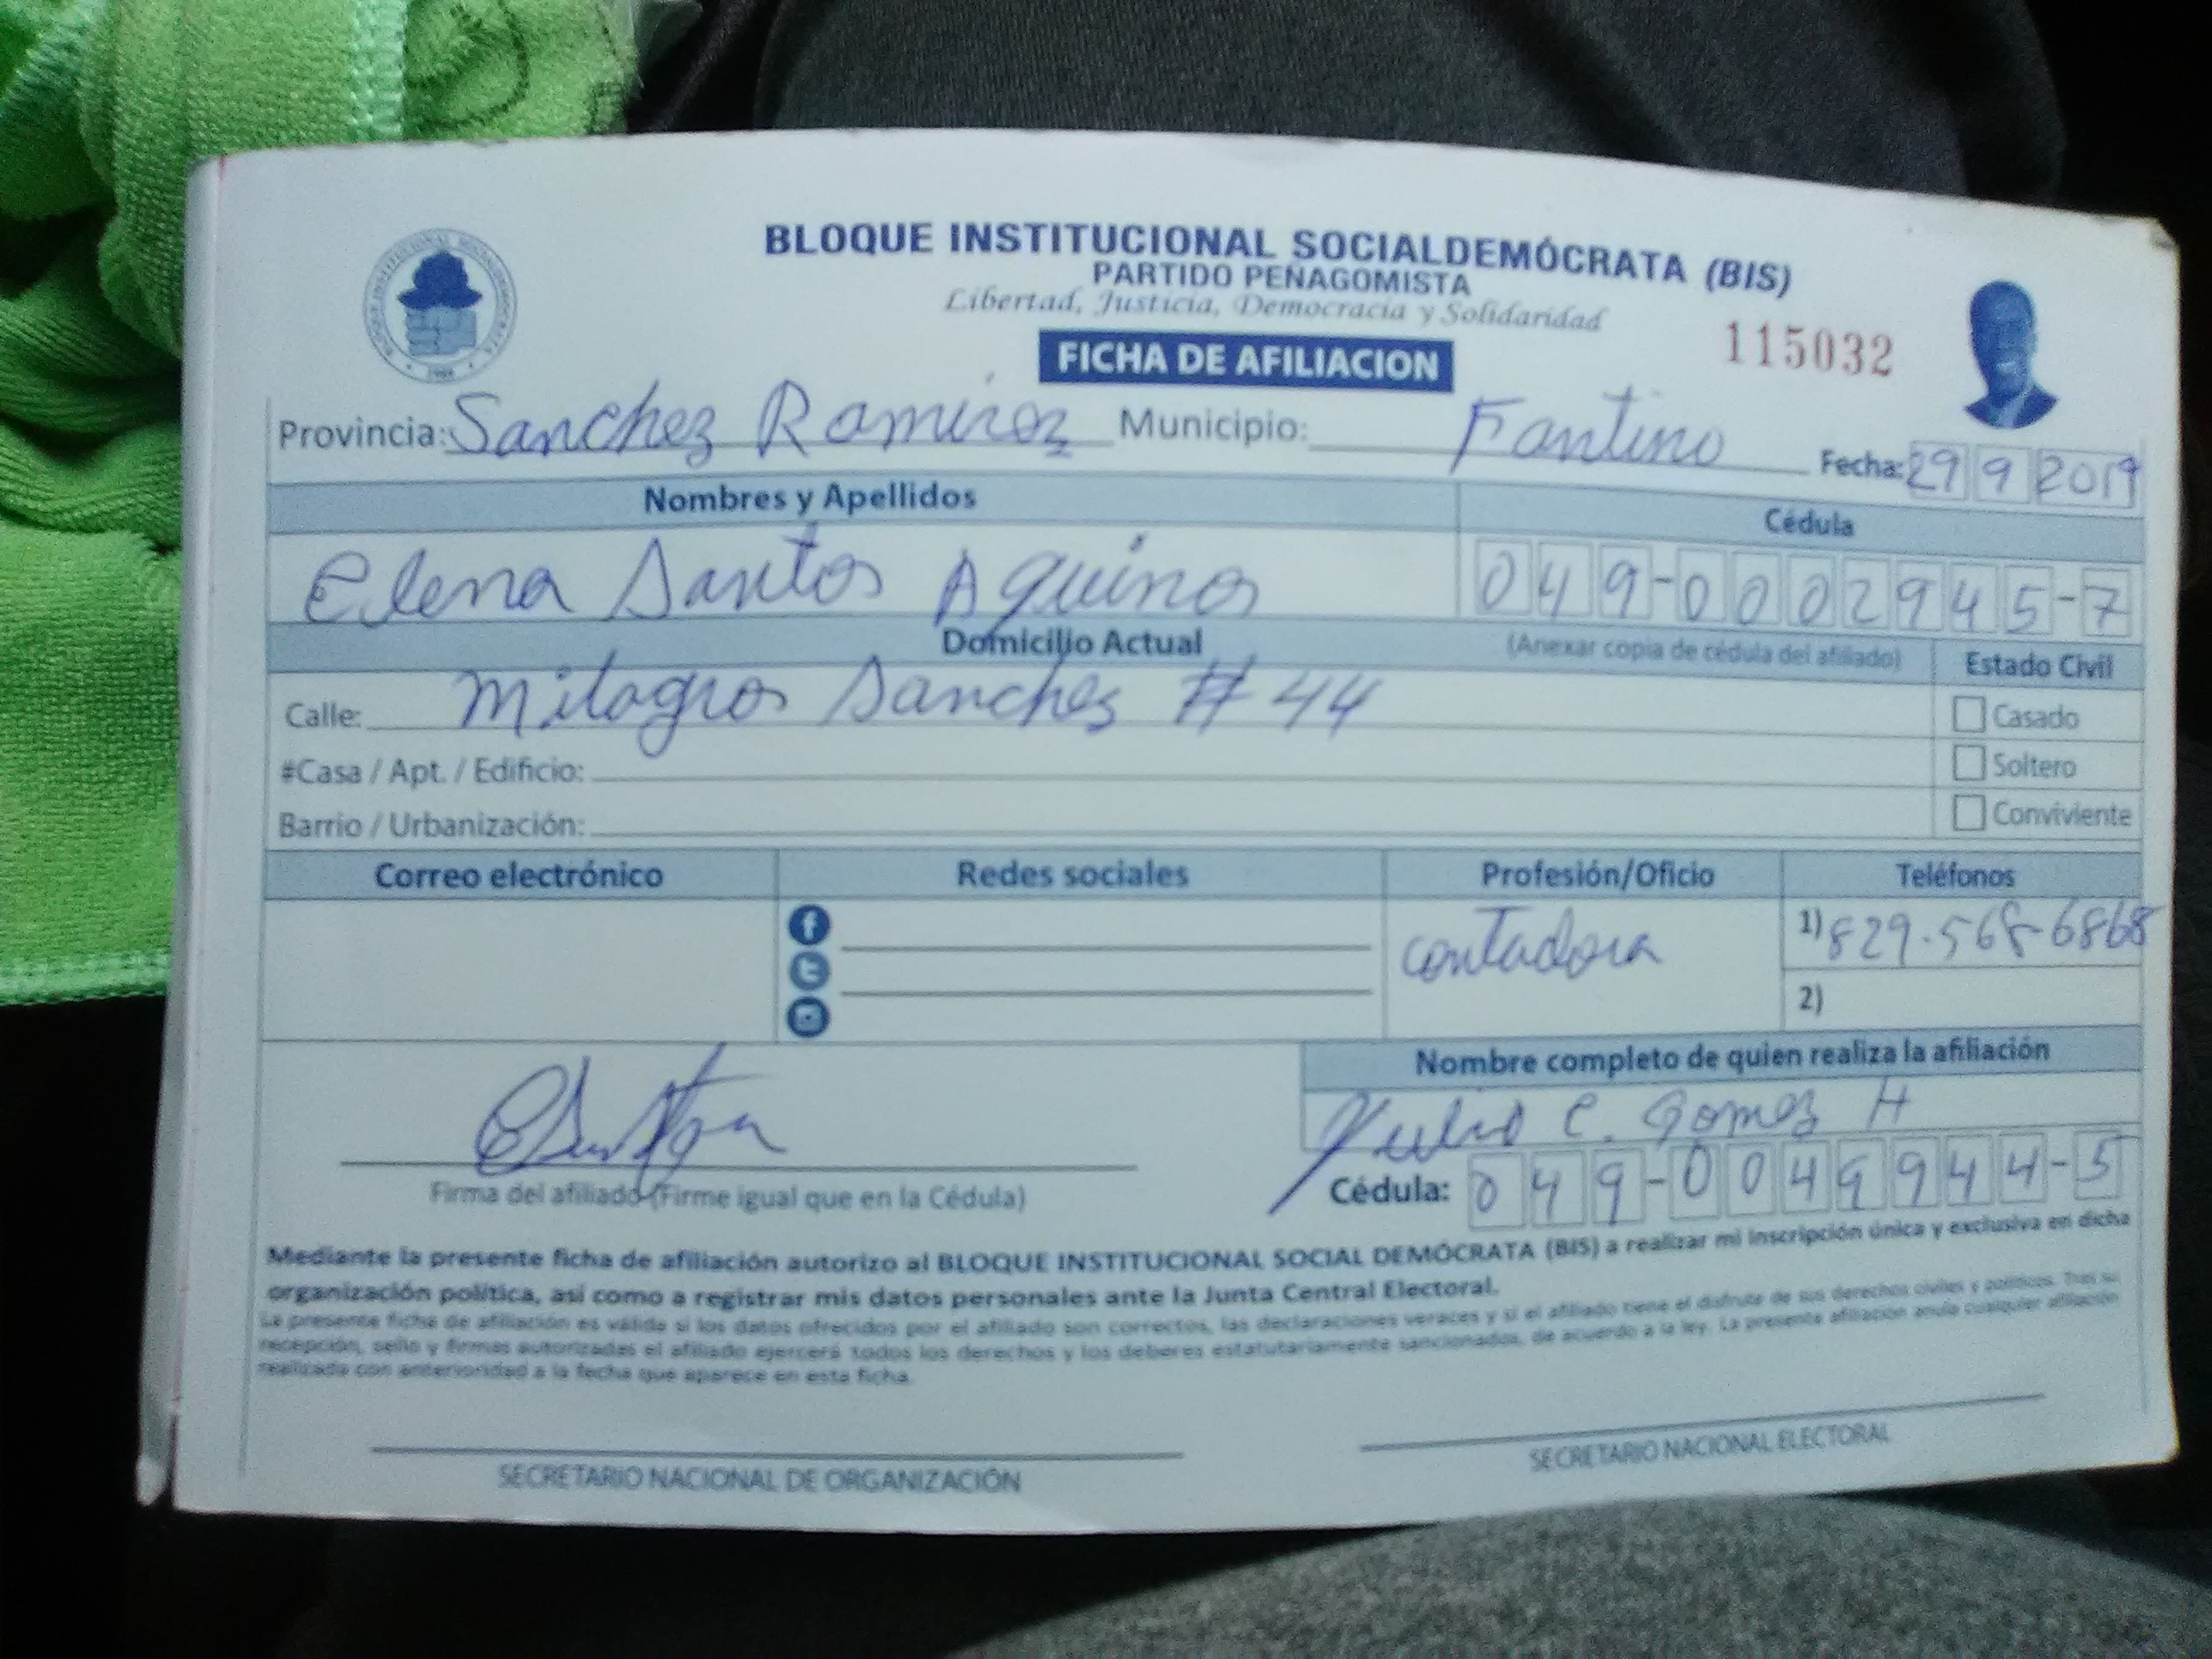 BLOQUE INSTITUCIONAL SOCIALDEMÓCRATA (BIS)
PARTIDO PEÑAGOMISTA
Libertad, Justicia, Democracia y Solidaridad
FICHA DE AFILIACION
115032
Provincia: Sanchez Ramirez Municipio: Fantino Fecha: 29 9 2019
Nombres y Apellidos Cédula
Elena Santos Aquino 049-0002945-7
Domicilio Actual (Anexar copia de cédula del afiliado) Estado Civil
Calle: Milagros Sanchez #44 Casado
#Casa / Apt. / Edificio: Soltero
Barrio / Urbanización: Conviviente
Correo electrónico Redes sociales Profesión/Oficio Teléfonos
contadora 1) 829-568-6868
2)
Nombre completo de quien realiza la afiliación
Julio C. Gomez H
Firma del afiliado (Firme igual que en la Cédula) Cédula: 049-0049944-5
Mediante la presente ficha de afiliación autorizo al BLOQUE INSTITUCIONAL SOCIAL DEMÓCRATA (BIS) a realizar mi inscripción única y exclusiva en dicha
organización política, así como a registrar mis datos personales ante la Junta Central Electoral.
La presente ficha de afiliación es válida si los datos ofrecidos por el afiliado son correctos, las declaraciones veraces y si el afiliado tiene el disfrute de sus derechos civiles y políticos. Tras su
recepción, sello y firmas autorizadas el afiliado ejercerá todos los derechos y los deberes estatutariamente sancionados, de acuerdo a la ley. La presente afiliación anula cualquier afiliación
realizada con anterioridad a la fecha que aparece en esta ficha.
SECRETARIO NACIONAL DE ORGANIZACIÓN SECRETARIO NACIONAL ELECTORAL